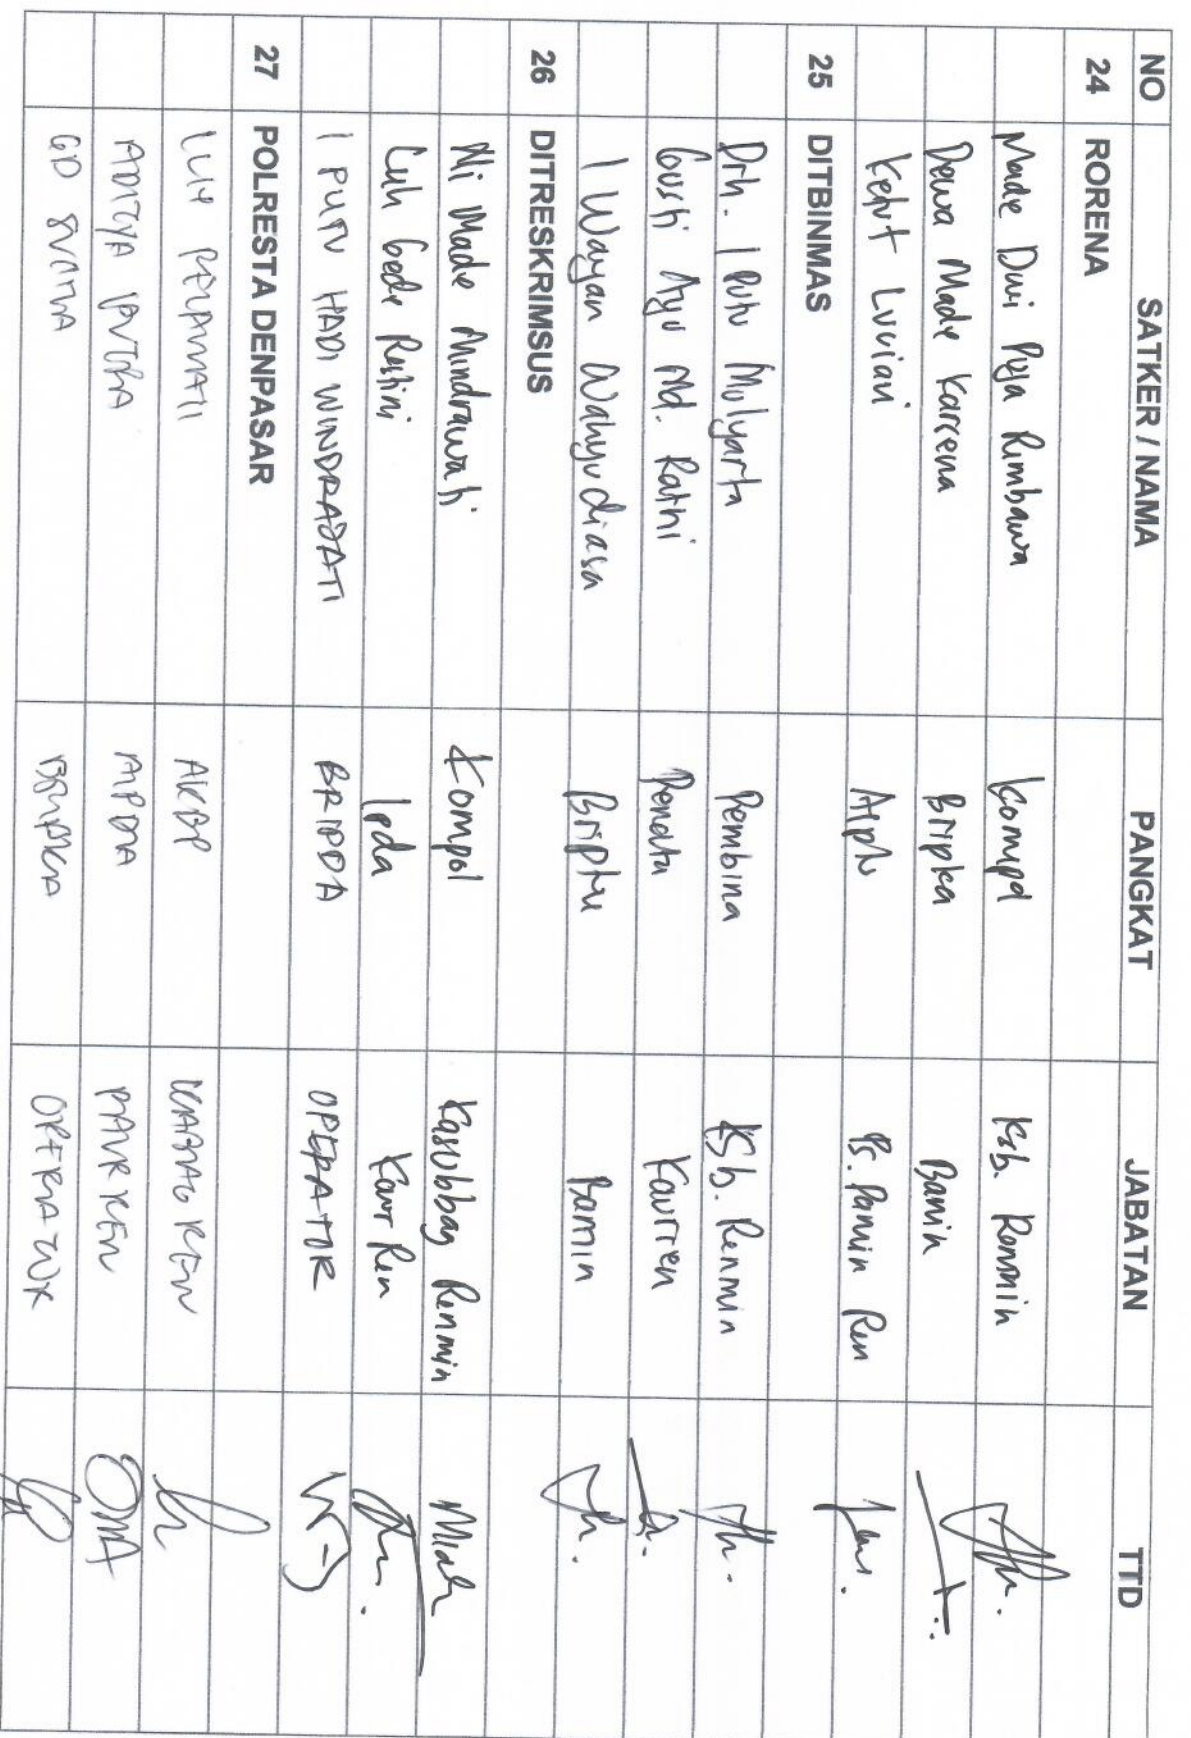 NO SATKER / NAMA PANGKAT JABATAN TTD
24 RORENA
Made Dwi Puja Rimbawa Kompol Ksb. Renmin
Dewa Made Karcena Bripka Bamin
Ketut Luviani Aiptu Ps. Pamin Ren
25 DITBINMAS
Drh. I Putu Mulyarta Pembina KSb. Renmin
Gusti Ayu Md. Ratni Penata Kaurren
I Wayan Wahyudiasa Briptu Bamin
26 DITRESKRIMSUS
Ni Made Mindrawati Kompol Kasubbag Renmin
Luh Gede Restini Ipda Kaur Ren
I PUTU HADI WINDRAJATI BRIPDA OPERATOR
27 POLRESTA DENPASAR
LUH AKBP KABAG REN
ADITYA PUTRA AIPDA PAUR REN
GD SUCITA BRIPKA OPERATOR